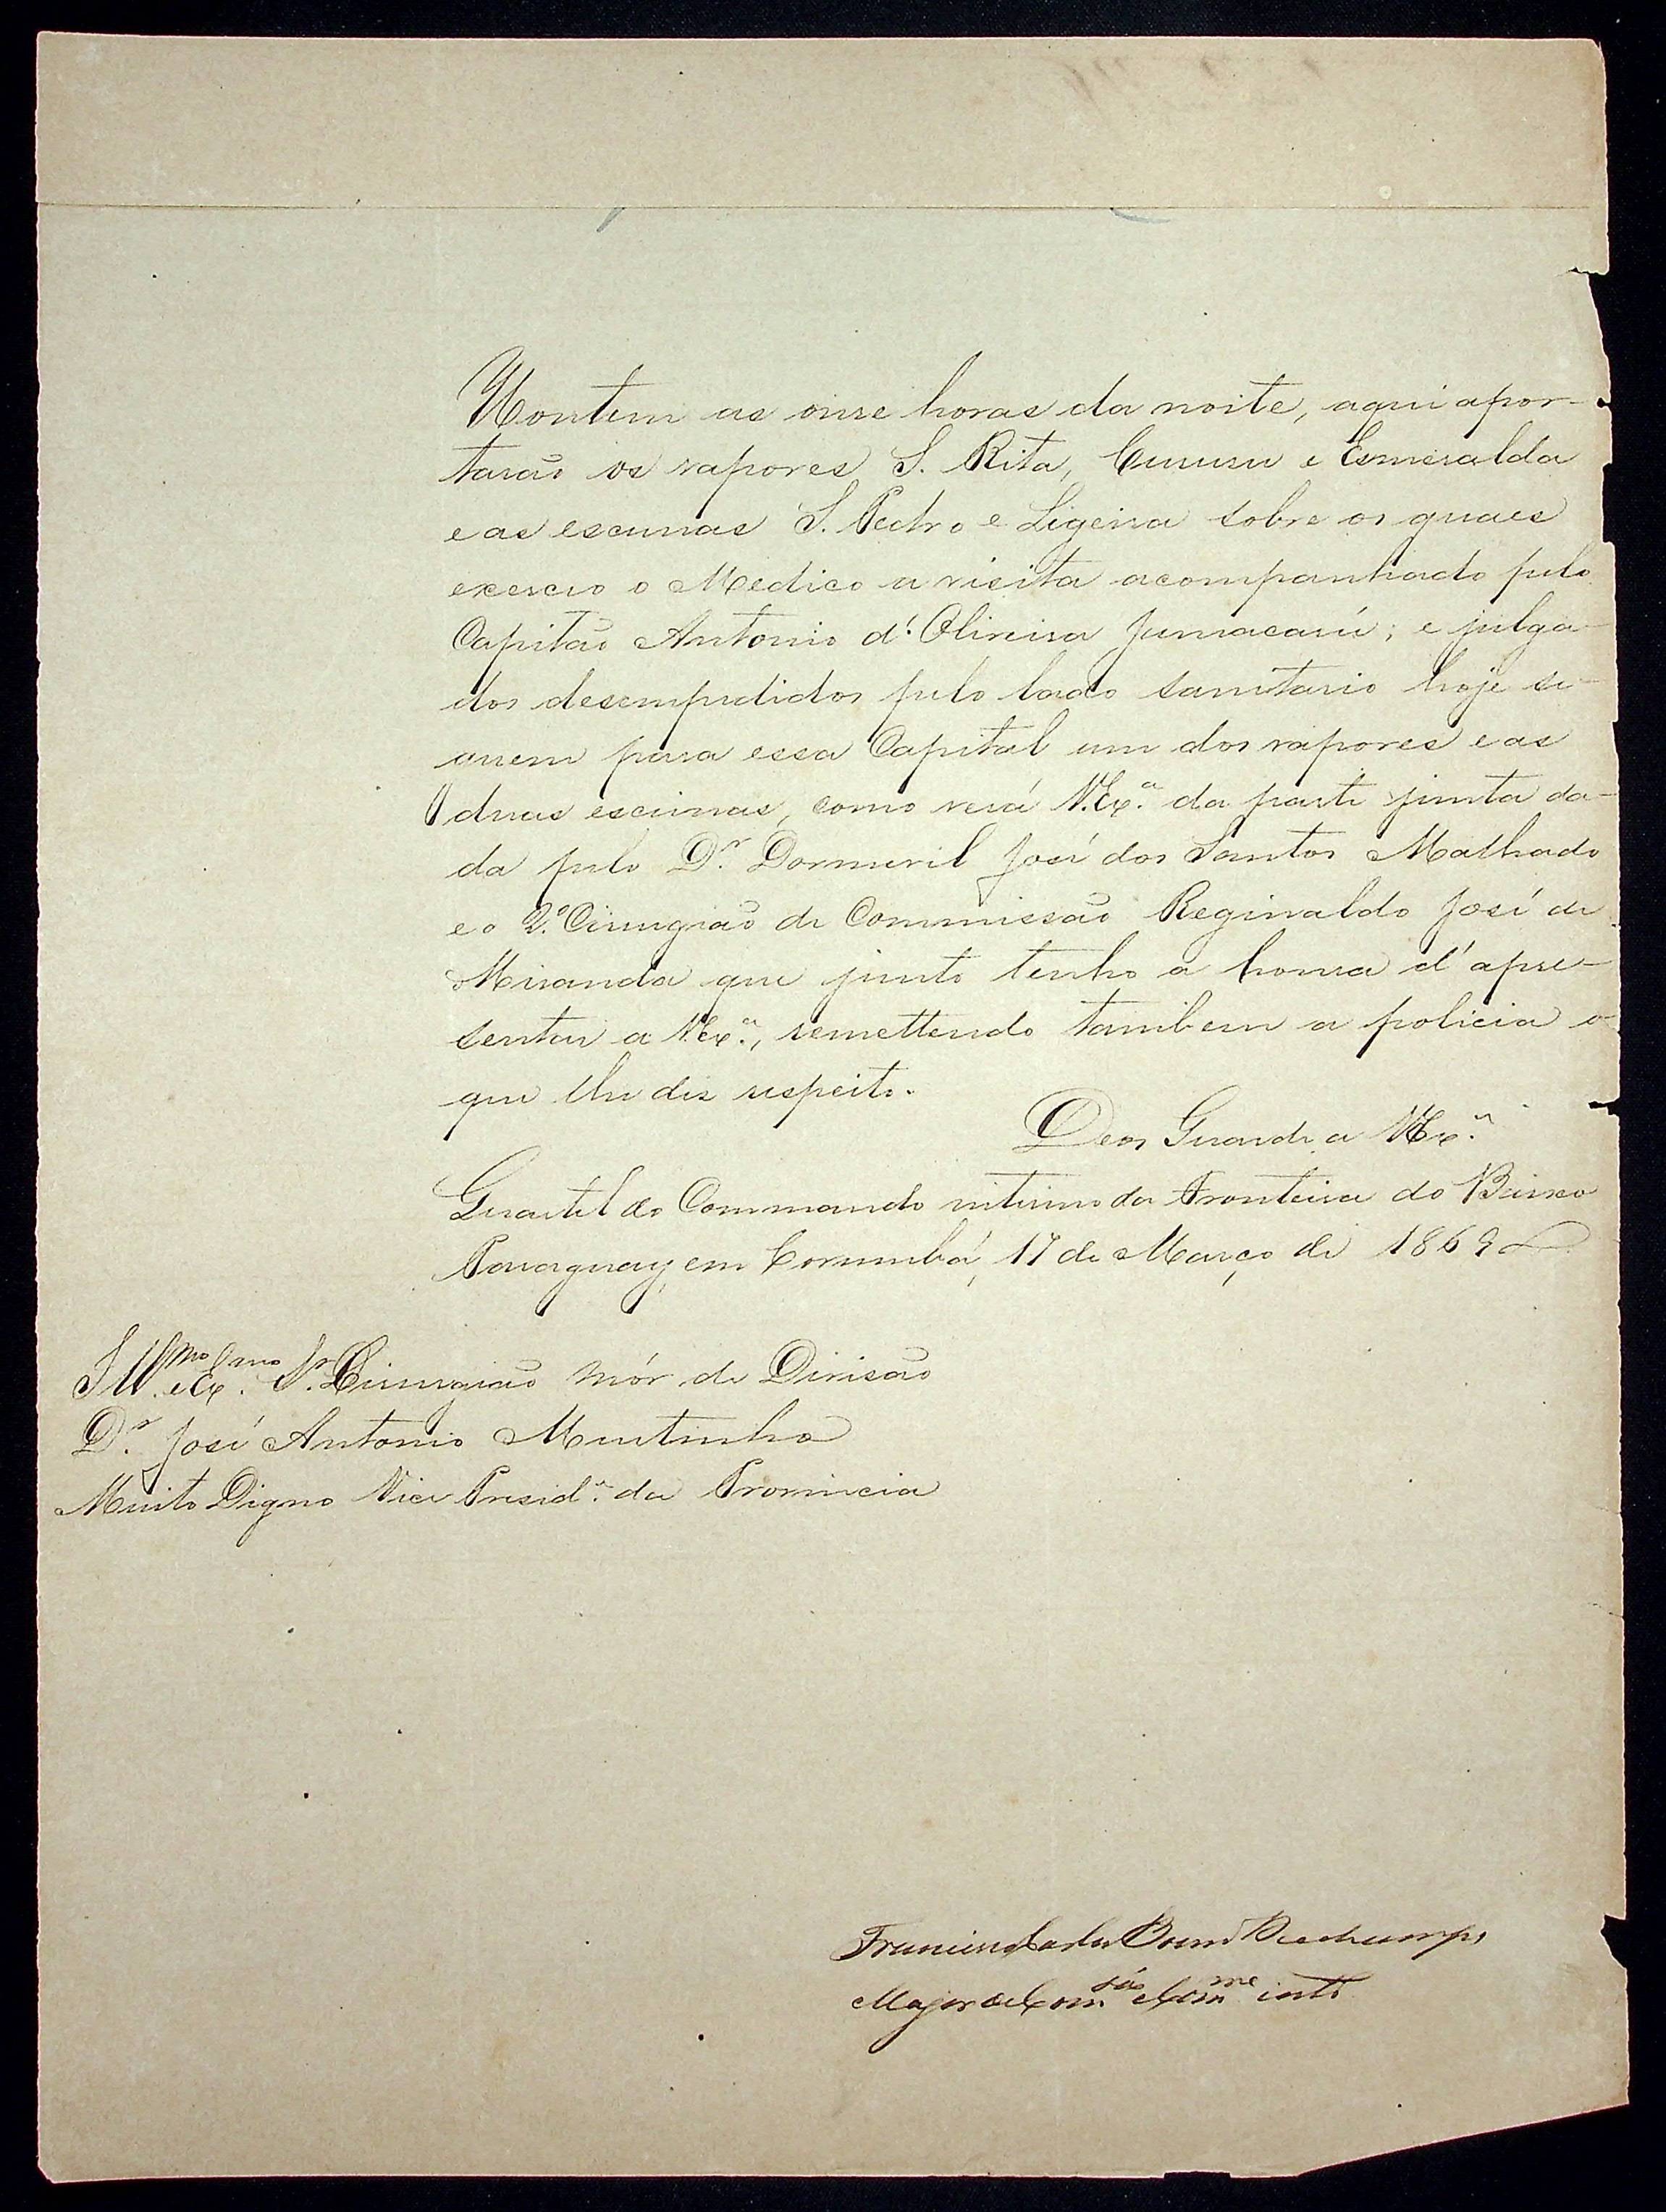 Hontem as onse horas da noite, aqui apor-
tarão os vapores S. Rita, Curusu e Esmeralda
e as escunas S. Pedro e Ligeira sobre os quaes
exerceo o Medico a visita acompanhado pelo
Capitão Antonio d'Oliveira Jumacarú; e julga-
dos desempedidos pelo lado sanitario hoje se-
guem para essa Capital um dos vapores e as
duas escunas, como verá V. Ex.ª da parte junta da-
da pelo D.r Dormevil José dos Santos Malhado
e o 2.º Cirurgião de Commissão Reginaldo José de
Miranda que junto tenho a honra d'apre-
sentar a V. Ex.ª, remettendo tambem a policia o
que lhe diz respeito.
Deos Guarde a V. Ex.ª
Quartel do Commando interino da Fronteira do Baixo
Paraguay, em Corumbá, 17 de Março de 1869
Ill.mo e Ex.mo S.r Cirurgião mór de Divisão
D.r José Antonio Murtinho
Muito Digno Vice Presid.e da Provincia
Bueno Deschamps
Major de Com.são e Com.me int.º